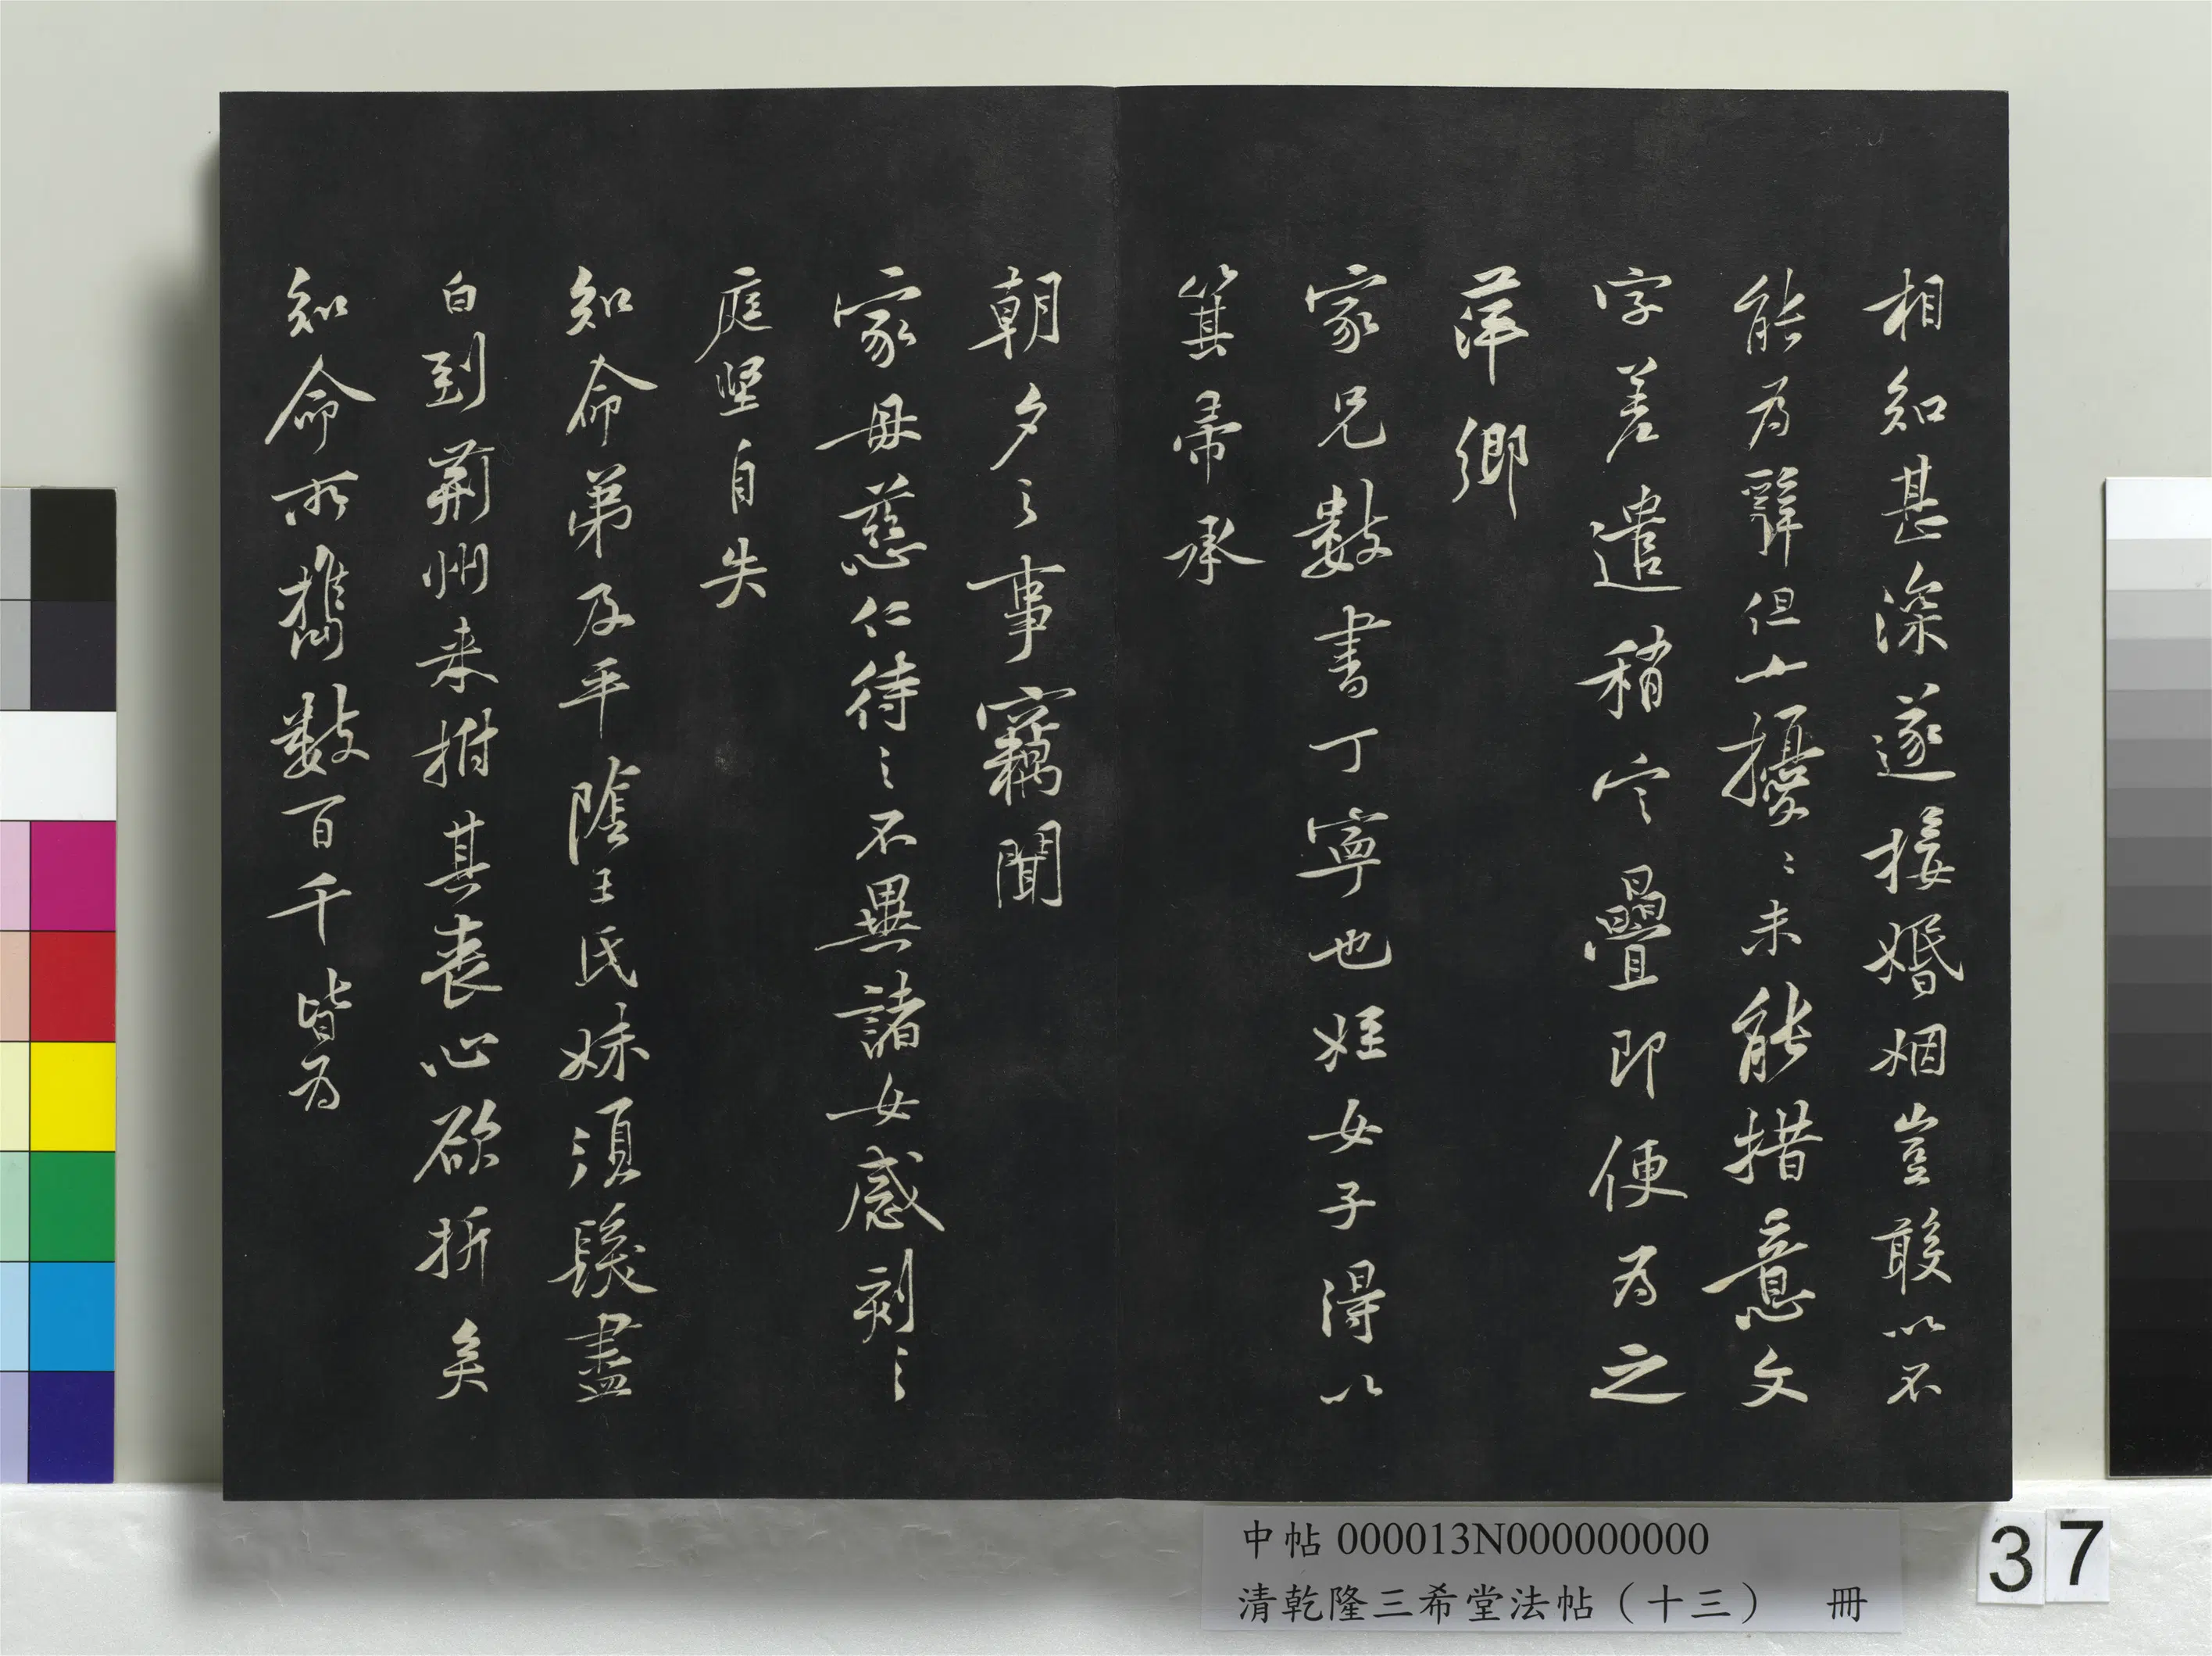 相知甚深遂接婚姻豈敢以不
能為辭但少擾擾未能措意文
字差遣稍定疊即便為之
萍鄉
家兄數書丁寧也姪女子得以
箕帚承
朝夕之事竊聞
家母慈仁待之不異諸女感刻之
庭堅自失
知命弟及平陰王氏妹須髮盡
白到荊州来拊其喪心欲折矣
知命所攜數百千皆為
中帖 000013N000000000
清乾隆三希堂法帖（十三） 冊
37